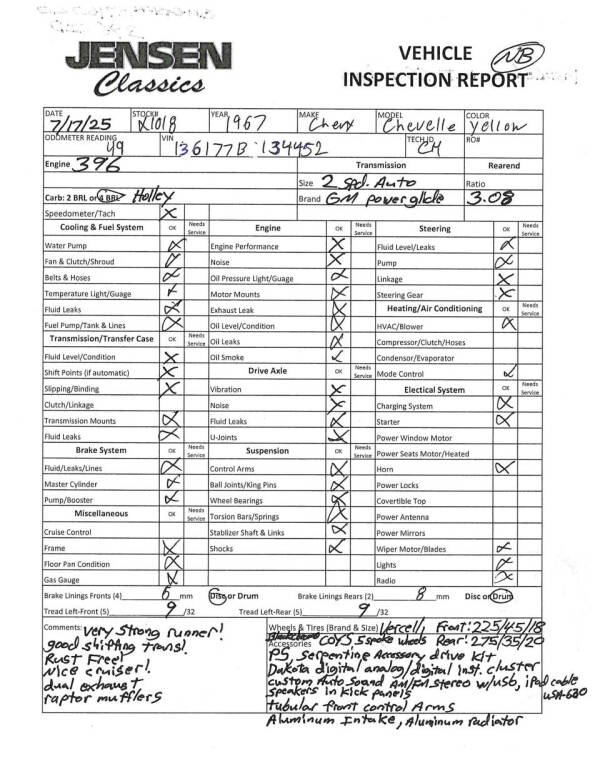 JENSEN
Classics
VEHICLE
INSPECTION REPORT
NB
DATE STOCK# YEAR MAKE MODEL COLOR
7/17/25 K1018 1967 Chevy Chevelle Yellow
ODOMETER READING VIN TECH ID RO#
49 136177B 134452 CH
Engine 396 Transmission Rearend
Size 2 Spd. Auto Ratio
Carb: 2 BRL or 4 BRL Holley Brand GM powerglide 3.08
Speedometer/Tach
Cooling & Fuel System OK Needs Service Engine OK Needs Service Steering OK Needs Service
Water Pump Engine Performance Fluid Level/Leaks
Fan & Clutch/Shroud Noise Pump
Belts & Hoses Oil Pressure Light/Guage Linkage
Temperature Light/Guage Motor Mounts Steering Gear
Fluid Leaks Exhaust Leak Heating/Air Conditioning OK Needs Service
Fuel Pump/Tank & Lines Oil Level/Condition HVAC/Blower
Transmission/Transfer Case OK Needs Service Oil Leaks Compressor/Clutch/Hoses
Fluid Level/Condition Oil Smoke Condensor/Evaporator
Shift Points (if automatic) Drive Axle OK Needs Service Mode Control
Slipping/Binding Vibration Electical System OK Needs Service
Clutch/Linkage Noise Charging System
Transmission Mounts Fluid Leaks Starter
Fluid Leaks U-Joints Power Window Motor
Brake System OK Needs Service Suspension OK Needs Service Power Seats Motor/Heated
Fluid/Leaks/Lines Control Arms Horn
Master Cylinder Ball Joints/King Pins Power Locks
Pump/Booster Wheel Bearings Covertible Top
Miscellaneous OK Needs Service Torsion Bars/Springs Power Antenna
Cruise Control Stablizer Shaft & Links Power Mirrors
Frame Shocks Wiper Motor/Blades
Floor Pan Condition Lights
Gas Gauge Radio
Brake Linings Fronts (4) 6 mm Disc or Drum Brake Linings Rears (2) 8 mm Disc or Drum
Tread Left-Front (5) 9 /32 Tread Left-Rear (5) 9 /32
Comments: very strong runner!
good shifting trans!
Rust Free!
Nice cruiser!
dual exhaust
raptor mufflers
Wheels & Tires (Brand & Size) Vercelli, Front: 225/45/18
Accessories COYS 5 spoke wheels Rear: 275/35/20
PS, Serpentine Accessory drive kit
Dakota digital analog/digital inst. cluster
custom Auto Sound AM/FM stereo w/usb, ipod cable
speakers in kick panels USA-630
tubular front control Arms
Aluminum Intake, Aluminum radiator